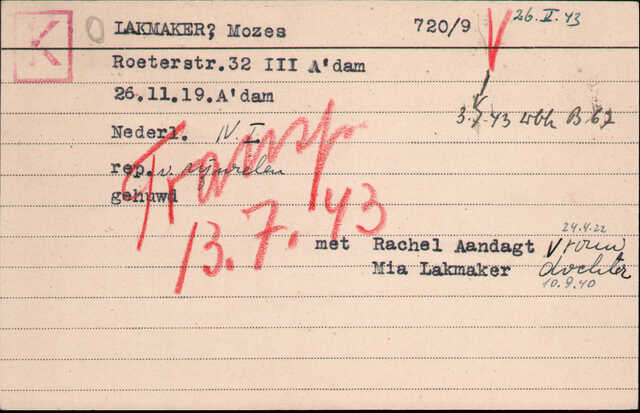 K
LAKMAKER, Mozes 720/9 26.V.43
Roeterstr.32 III A'dam
26.11.19.A'dam 3.7.43 wbh B.62
Nederl. IV. I
rep. v. rijwielen
gehuwd
Transp
13.7.43
24.4.22
met Rachel Aandagt vrouw
Mia Lakmaker dochter
10.9.40